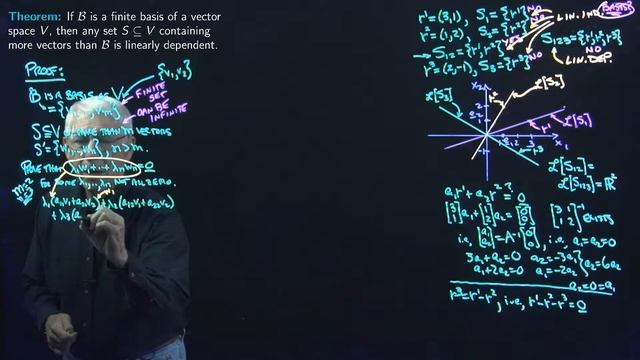 Theorem: If B is a finite basis of a vector
space V, then any set S ⊆ V containing
more vectors than B is linearly dependent.
PROOF:
B IS A BASIS OF V
FINITE
SET
CAN BE
INFINITE
S ⊆ V
VECTORS
n > m.
PROVE THAT λ₁w₁ + ... + λₙwₙ = 0
FOR SOME λ₁, ..., λₙ NOT ALL ZERO.
λ₁(a₁₁v₁ + a₂₁v₂) + λ₂(a₁₂v₁ + a₂₂v₂)
+ λ₃(a
r¹ = (3,1), S₁ = {r¹}
r² = (1,2), S₂ = {r²}
→ S₁₂ = {r¹, r²}
r³ = (2,-1), S₃ = {r³}
NO
LIN. IND.
BASIS?
S₁₂₃ = {r¹, r², r³}
NO
LIN. DEP.
x₂
L[S₂]
L[S₃]
L[S₁]
r²
r¹
r³
x₁
L[S₁₂] =
L[S₁₂₃] = ℝ²
a₁r¹ + a₂r² ≟ 0
[3 1] a₁ + [1 2] a₂ = [0 0]
[3 1 1 2]⁻¹ EXISTS
i.e., [a₁ a₂] = A⁻¹ [0 0], i.e., a₁ = a₂ = 0
3a₁ + a₂ = 0
a₂ = -3a₁
a₁ + 2a₂ = 0
a₁ = -2a₂
a₂ = 6a₂
a₂ = 0 = a₁
r³ = r¹ - r², i.e., r¹ - r² - r³ = 0